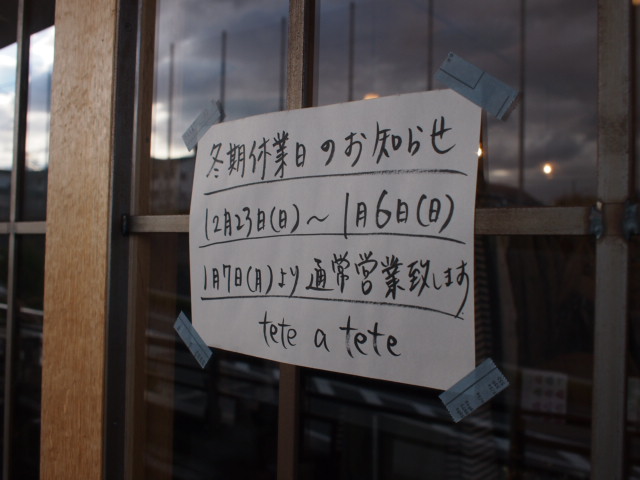 冬期休業日のお知らせ
12月23日(日)～1月6日(日)
1月7日(月)より通常営業致します
tete a tete